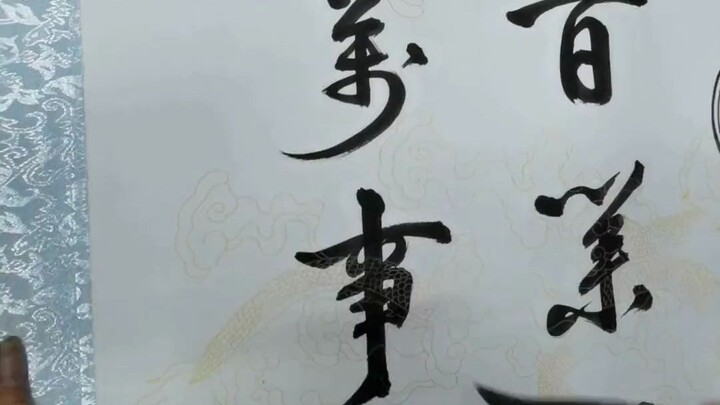 百業
萬事